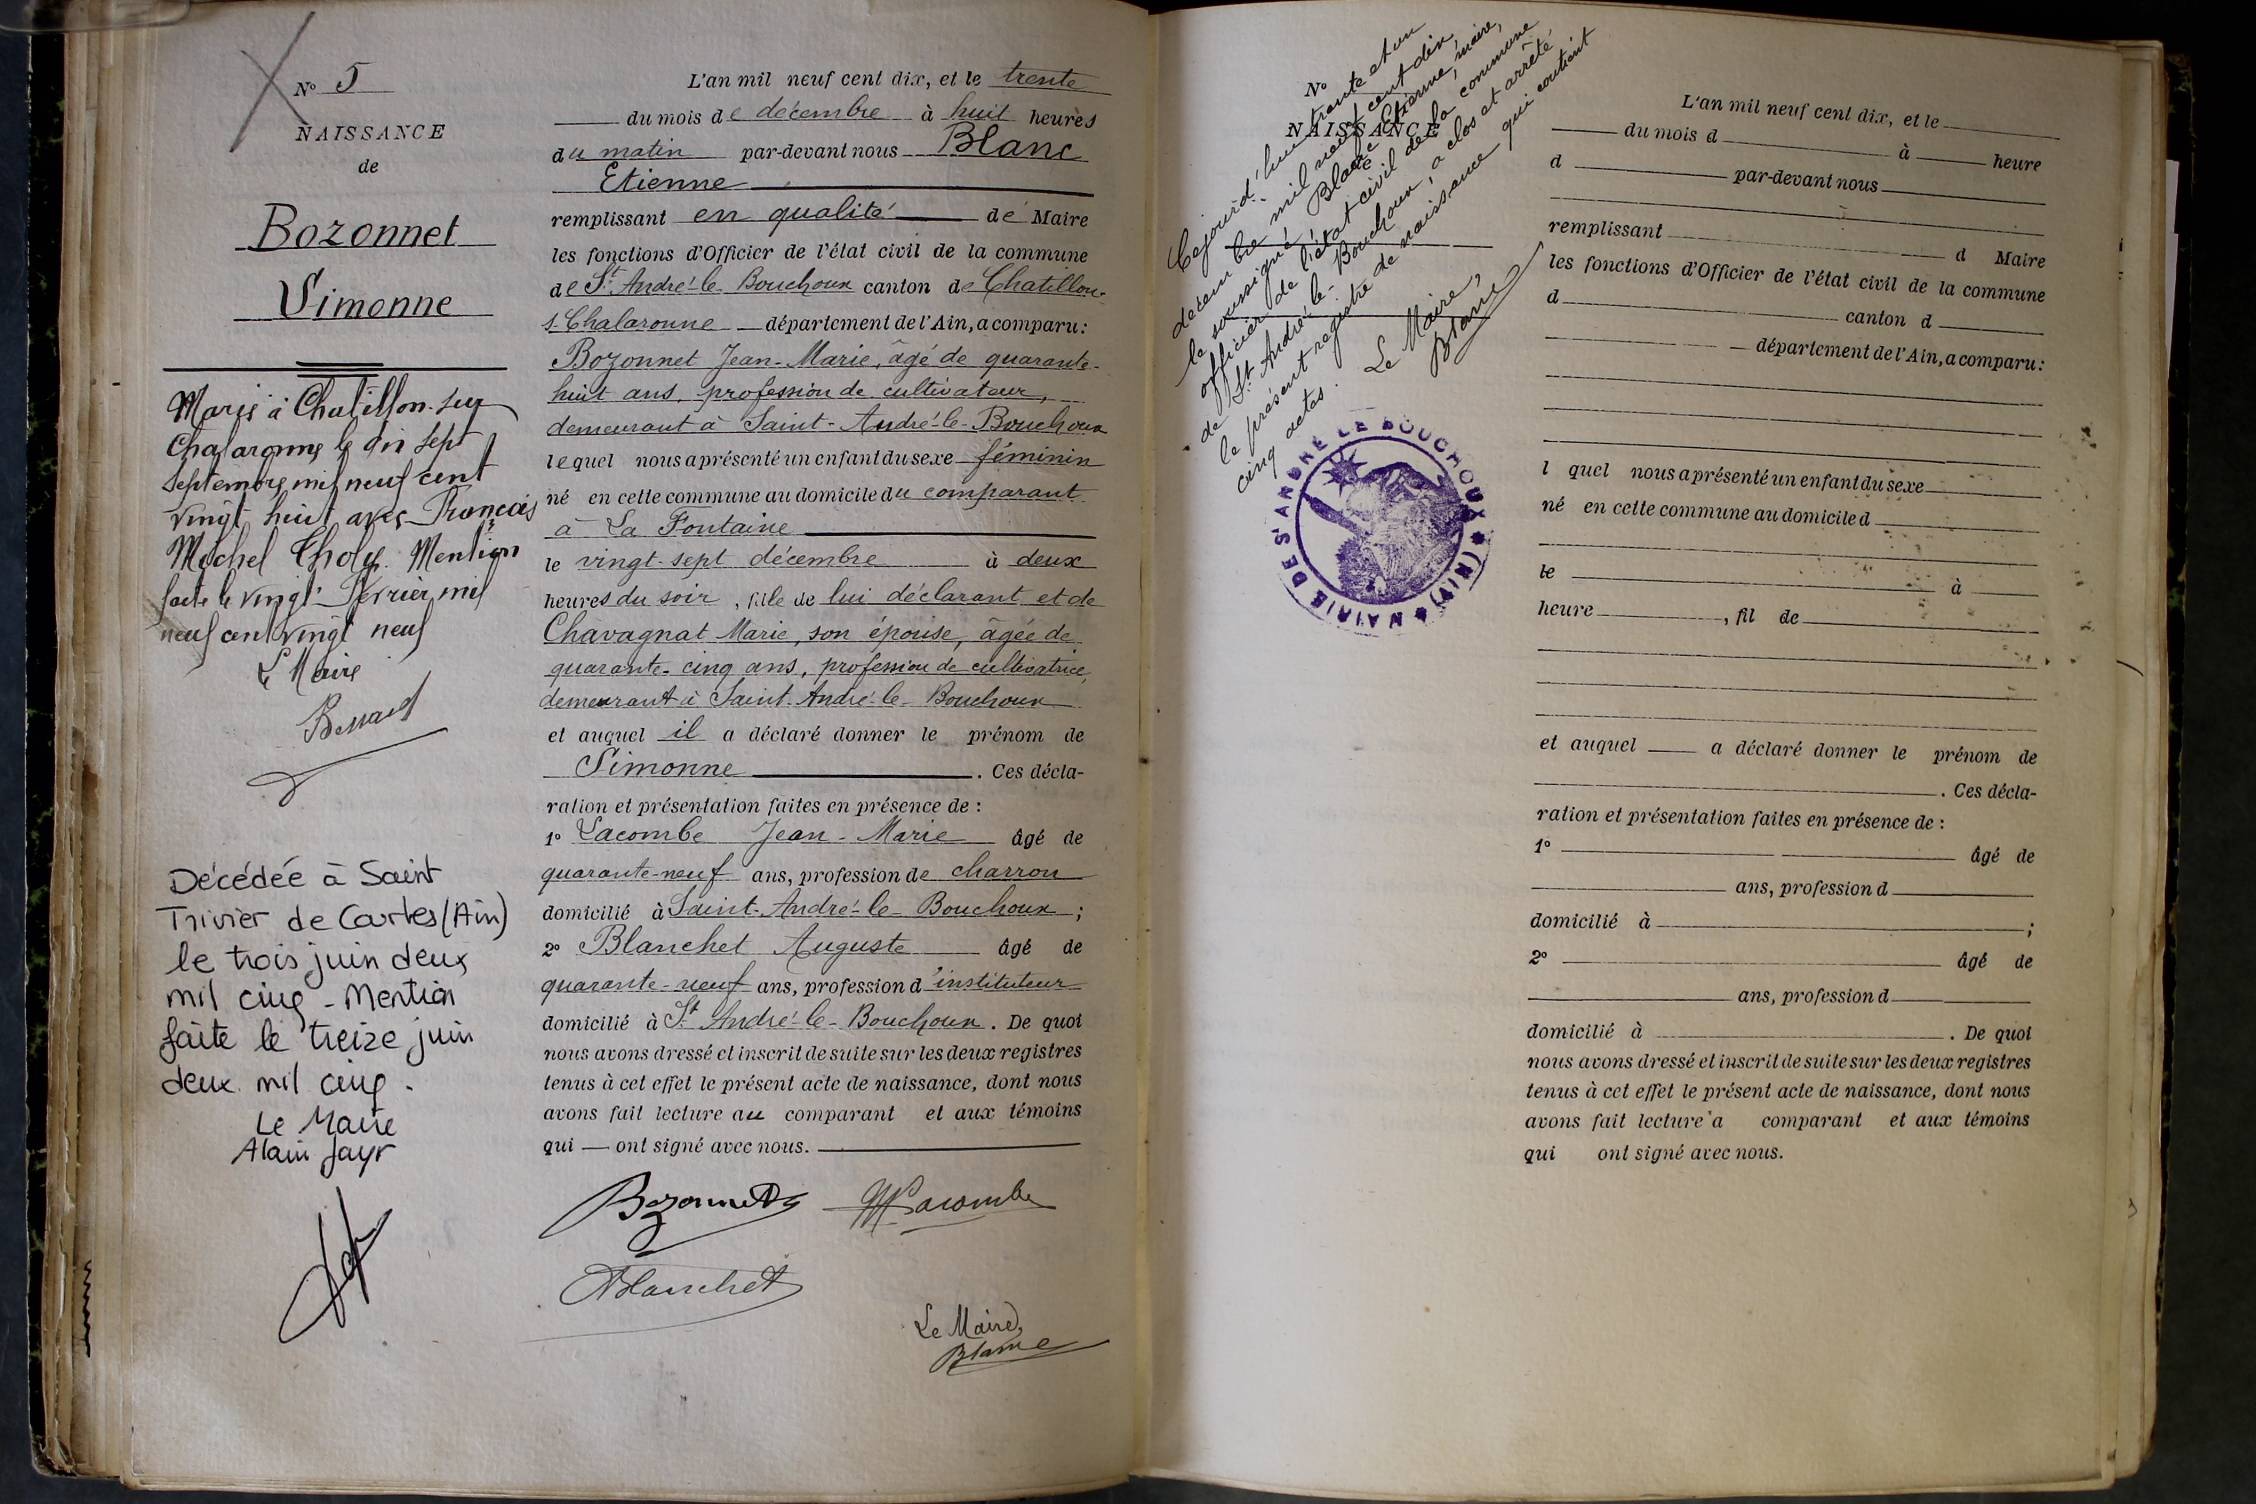 N° 5
NAISSANCE
de
Bozonnet
Simonne
Marié à Chatillon-sur
Chalaronne le dix sept
Septembre mil neuf cent
vingt huit avec François
Michel Tholy. Mention
faite le vingt Février mil
neuf cent vingt neuf
Le Maire
Décédée à Saint
Trivier de Courtes (Ain)
le trois juin deux
mil cinq - Mention
faite le treize juin
deux mil cinq.
Le Maire
Alain Jayr
L'an mil neuf cent dix, et le trente
du mois de décembre à huit heures
du matin par-devant nous Blanc
Etienne
remplissant en qualité de Maire
les fonctions d'Officier de l'état civil de la commune
de St André-le-Bouchoux canton de Chatillon-
s-Chalaronne département de l'Ain, a comparu:
Bozonnet Jean-Marie, âgé de quarante-
huit ans, profession de cultivateur,
demeurant à Saint-André-le-Bouchoux
lequel nous a présenté un enfant du sexe féminin
né en cette commune au domicile du comparant
à La Fontaine
le vingt-sept décembre à deux
heures du soir, fille de lui déclarant et de
Chavagnat Marie, son épouse, âgée de
quarante-cinq ans, profession de cultivatrice,
demeurant à Saint-André-le-Bouchoux
et auquel il a déclaré donner le prénom de
Simonne. Ces décla-
ration et présentation faites en présence de :
1° Lacombe Jean-Marie âgé de
quarante-neuf ans, profession de charron
domicilié à Saint-André-le-Bouchoux ;
2° Blanchet Auguste âgé de
quarante-neuf ans, profession d'instituteur
domicilié à St André-le-Bouchoux. De quoi
nous avons dressé et inscrit de suite sur les deux registres
tenus à cet effet le présent acte de naissance, dont nous
avons fait lecture au comparant et aux témoins
qui — ont signé avec nous.
Bozonnet Lacombe
Blanchet
Le Maire,
Blanc
N°
NAISSANCE
Cejourd'hui trente et un
décembre mil neuf cent dix,
le soussigné, Blanc Etienne, maire,
officier de l'état civil de la commune
de St André-le-Bouchoux, a clos et arrêté
le présent registre de naissance qui contient
cinq actes. Le Maire,
Blanc
MAIRIE DE ST ANDRÉ LE BOUCHOUX * (AIN) *
L'an mil neuf cent dix, et le
du mois d à heure
d par-devant nous
remplissant d Maire
les fonctions d'Officier de l'état civil de la commune
d canton d
département de l'Ain, a comparu:
l quel nous a présenté un enfant du sexe
né en cette commune au domicile d
le à
heure , fil de
et auquel a déclaré donner le prénom de
. Ces décla-
ration et présentation faites en présence de :
1° âgé de
ans, profession d
domicilié à ;
2° âgé de
ans, profession d
domicilié à . De quoi
nous avons dressé et inscrit de suite sur les deux registres
tenus à cet effet le présent acte de naissance, dont nous
avons fait lecture a comparant et aux témoins
qui ont signé avec nous.